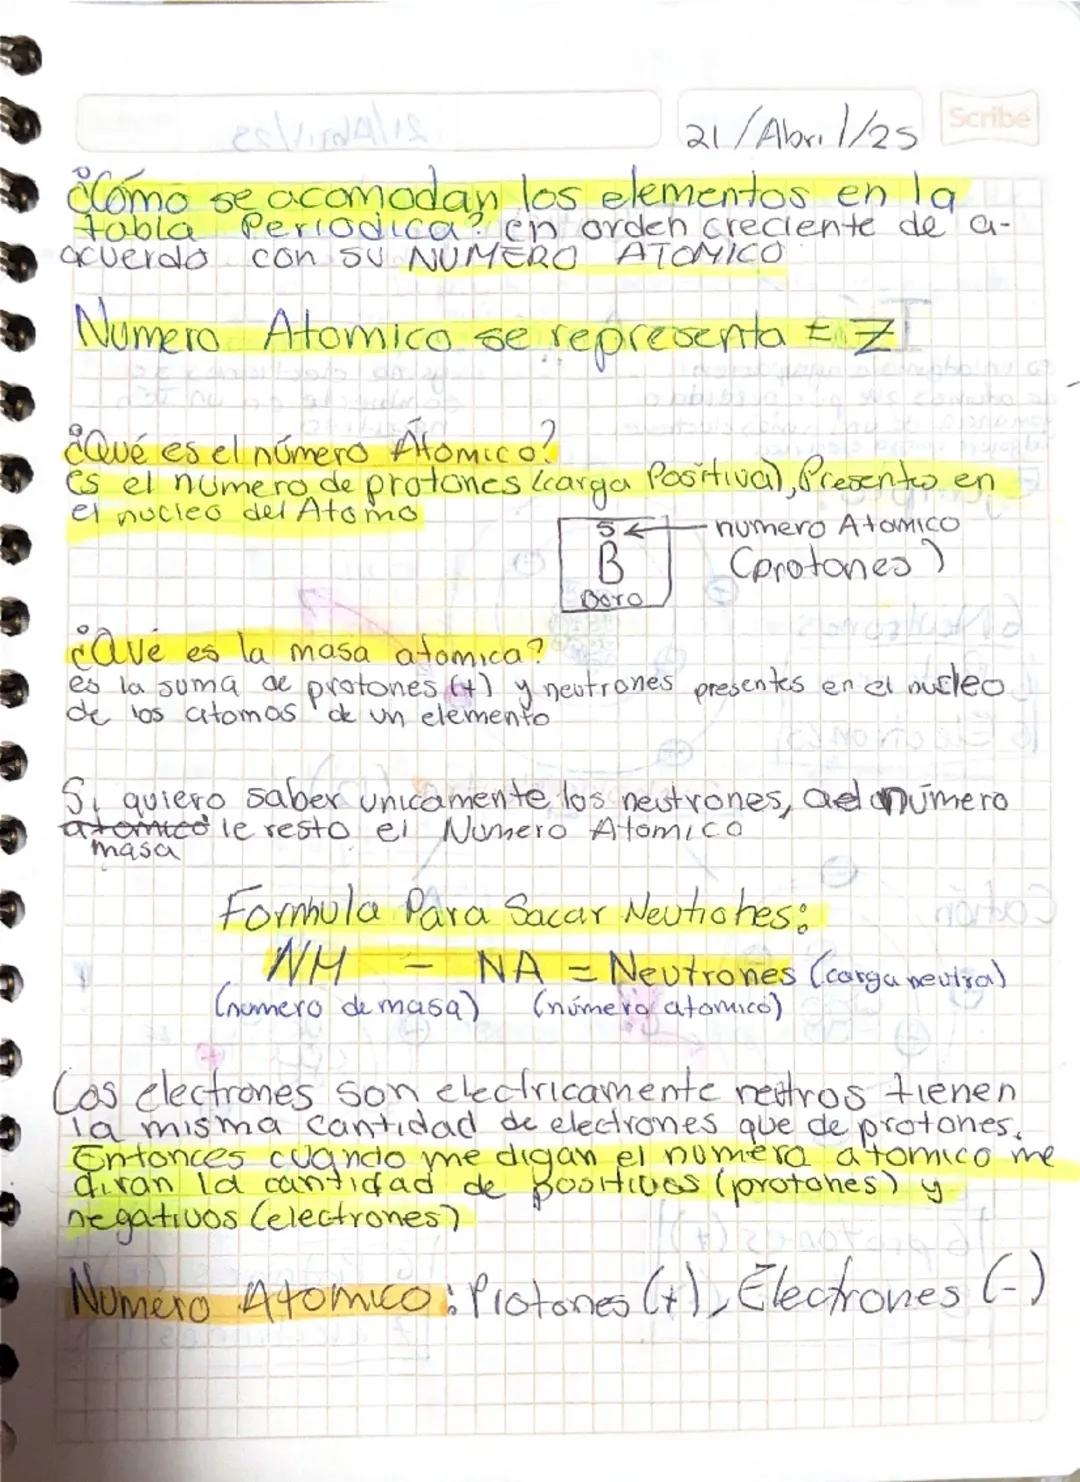 21/Abril/25
Scribe
¿Cómo se acomodan los elementos en la
tabla Periodica? en orden creciente de a-
acuerdo con su NUMERO ATOMICO
Numero Atomico se representa = Z
¿Qué es el número Atomico?
es el numero de protones (carga Positiva), Presento en
el nucleo del Atomo
5
numero Atomico
B
(protones)
Boro
¿Qué es la masa atomica?
es la suma de protones (+) y neutrones presentes en el nucleo
de los atomos de un elemento
Si quiero saber unicamente los neutrones, número
atomico le resto el Numero Atomico
masa
Formula Para Sacar Neutrones:
NM - NA = Neutrones (carga neutra)
(numero de masa) (número atomico)
Los electrones son electricamente neutros tienen
la misma cantidad de electrones que de protones.
Entonces cuando me digan el numero atomico me
diran la cantidad de positivos (protones) y
negativos (electrones)
Numero Atomico: Protones (+), Electrones (-)